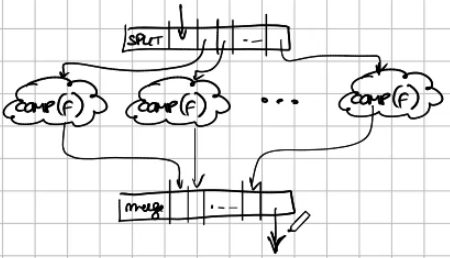 SPLIT ...
comp(f) comp(f) ... comp(f)
merge ...